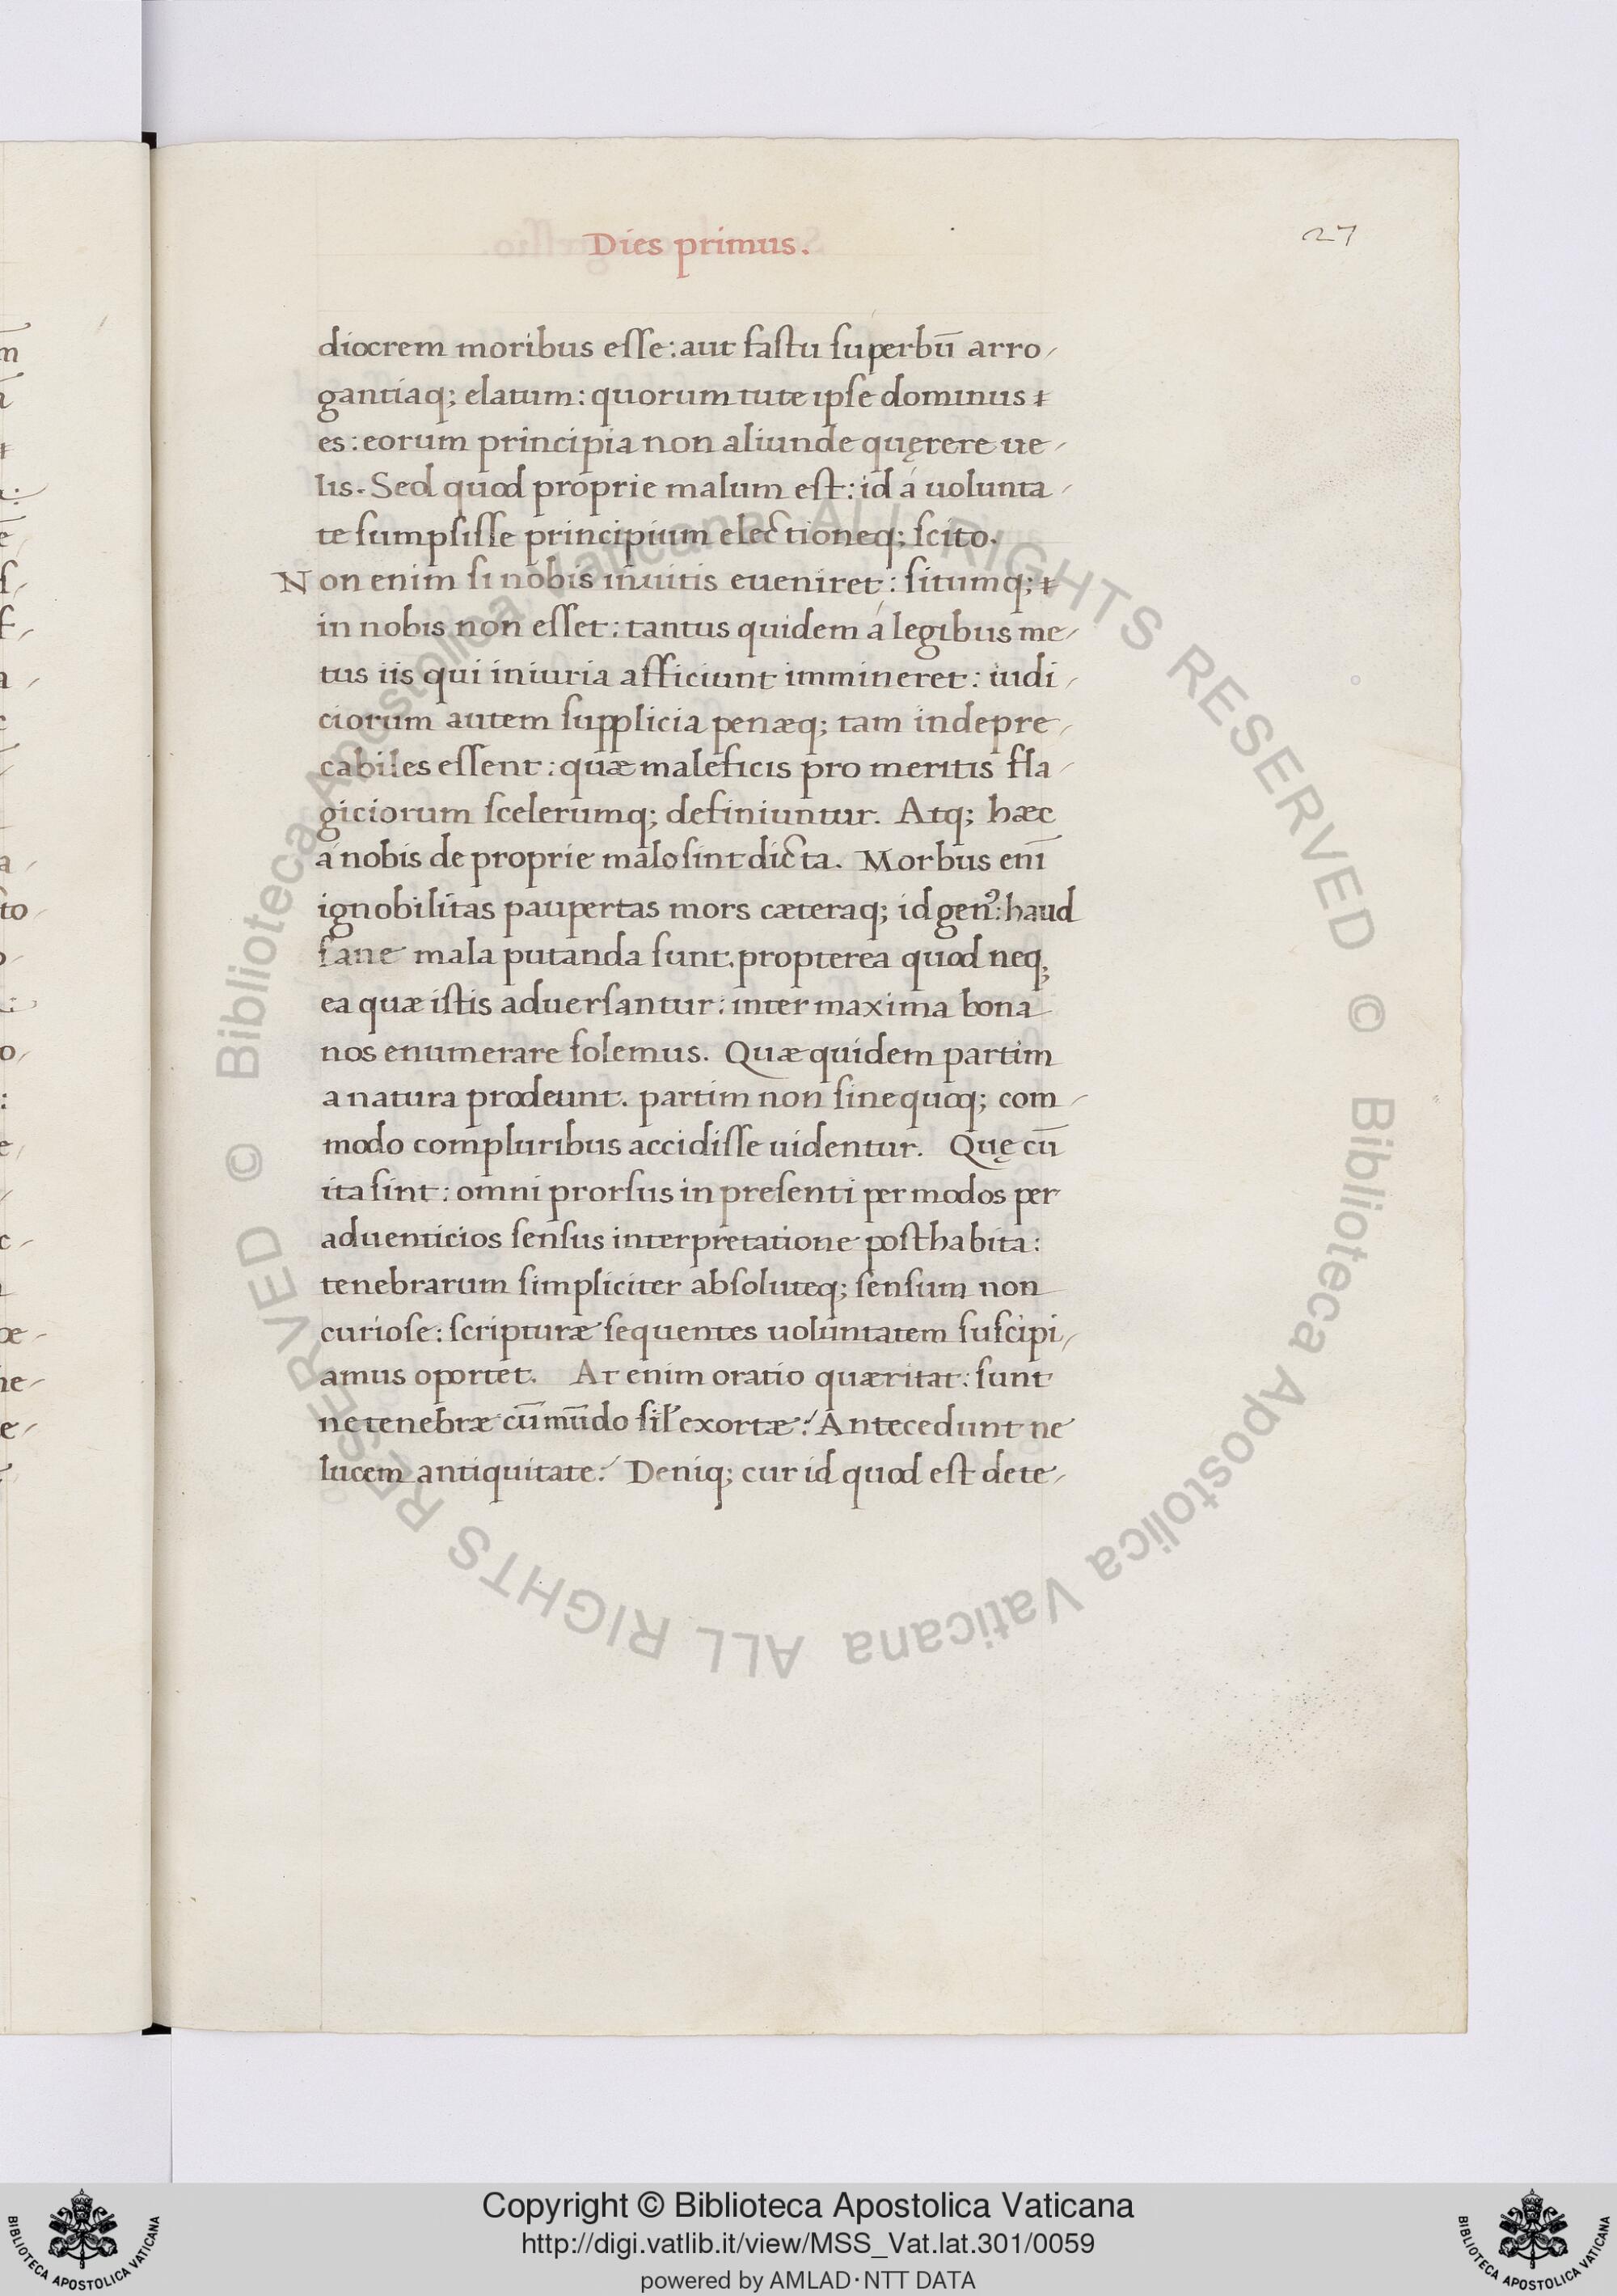 Dies primus.
27
diocrem moribus esse: aut fastu superbū arro-
gantiaq; elatum: quorum tute ipse dominus
es: eorum principia non aliunde quęrere ue-
lis. Sed quod proprie malum est: id á uolunta-
te sumpsisse principium electioneq; scito.
Non enim si nobis inuitis eueniret: situmq;
in nobis non esset: tantus quidem á legibus me-
tus iis qui iniuria afficiunt immineret: iudi-
ciorum autem supplicia penæq; tam indepre-
cabiles essent: quæ maleficis pro meritis fla-
giciorum scelerumq; definiuntur. Atq; hæc
á nobis de proprie malo sint dicta. Morbus enī
ignobilitas paupertas mors cæteraq; id genꝰ: haud
sane mala putanda sunt. propterea quod neq;
ea quæ istis aduersantur: inter maxima bona
nos enumerare solemus. Quæ quidem partim
a natura prodeunt. partim non sine quoq; com-
modo compluribus accidisse uidentur. Quę cū
ita sint: omni prorsus in presenti per modos per
aduenticios sensus interpretatione posthabita:
tenebrarum simpliciter absoluteq; sensum non
curiose: scripturæ sequentes uoluntatem suscipi-
amus oportet. At enim oratio quæritat: sunt
ne tenebræ cū mūdo sil' exortæ? Antecedunt ne
lucem antiquitate? Deniq; cur id quod est dete-
© Biblioteca Apostolica Vaticana ALL RIGHTS RESERVED © Biblioteca Apostolica Vaticana ALL RIGHTS RESERVED
Copyright © Biblioteca Apostolica Vaticana
http://digi.vatlib.it/view/MSS_Vat.lat.301/0059
powered by AMLAD·NTT DATA
BIBLIOTECA APOSTOLICA VATICANA
BIBLIOTECA APOSTOLICA VATICANA